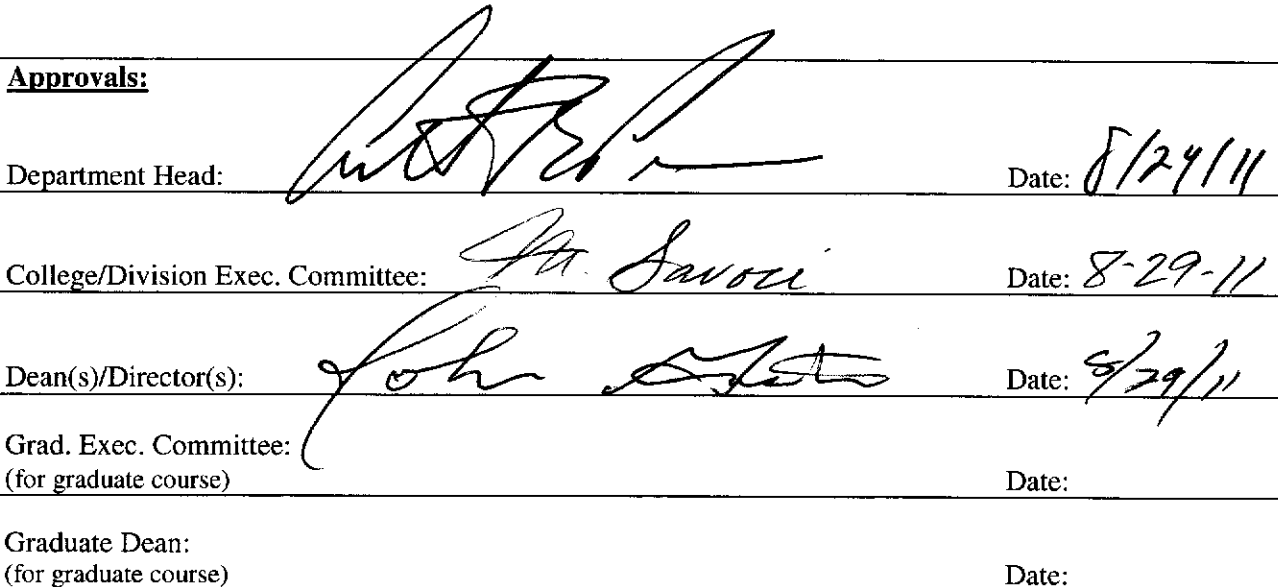 Approvals:
Department Head: Date: 8/24/11
College/Division Exec. Committee: Savoie Date: 8-29-11
Dean(s)/Director(s): John Date: 8/29/11
Grad. Exec. Committee:
(for graduate course) Date:
Graduate Dean:
(for graduate course) Date: